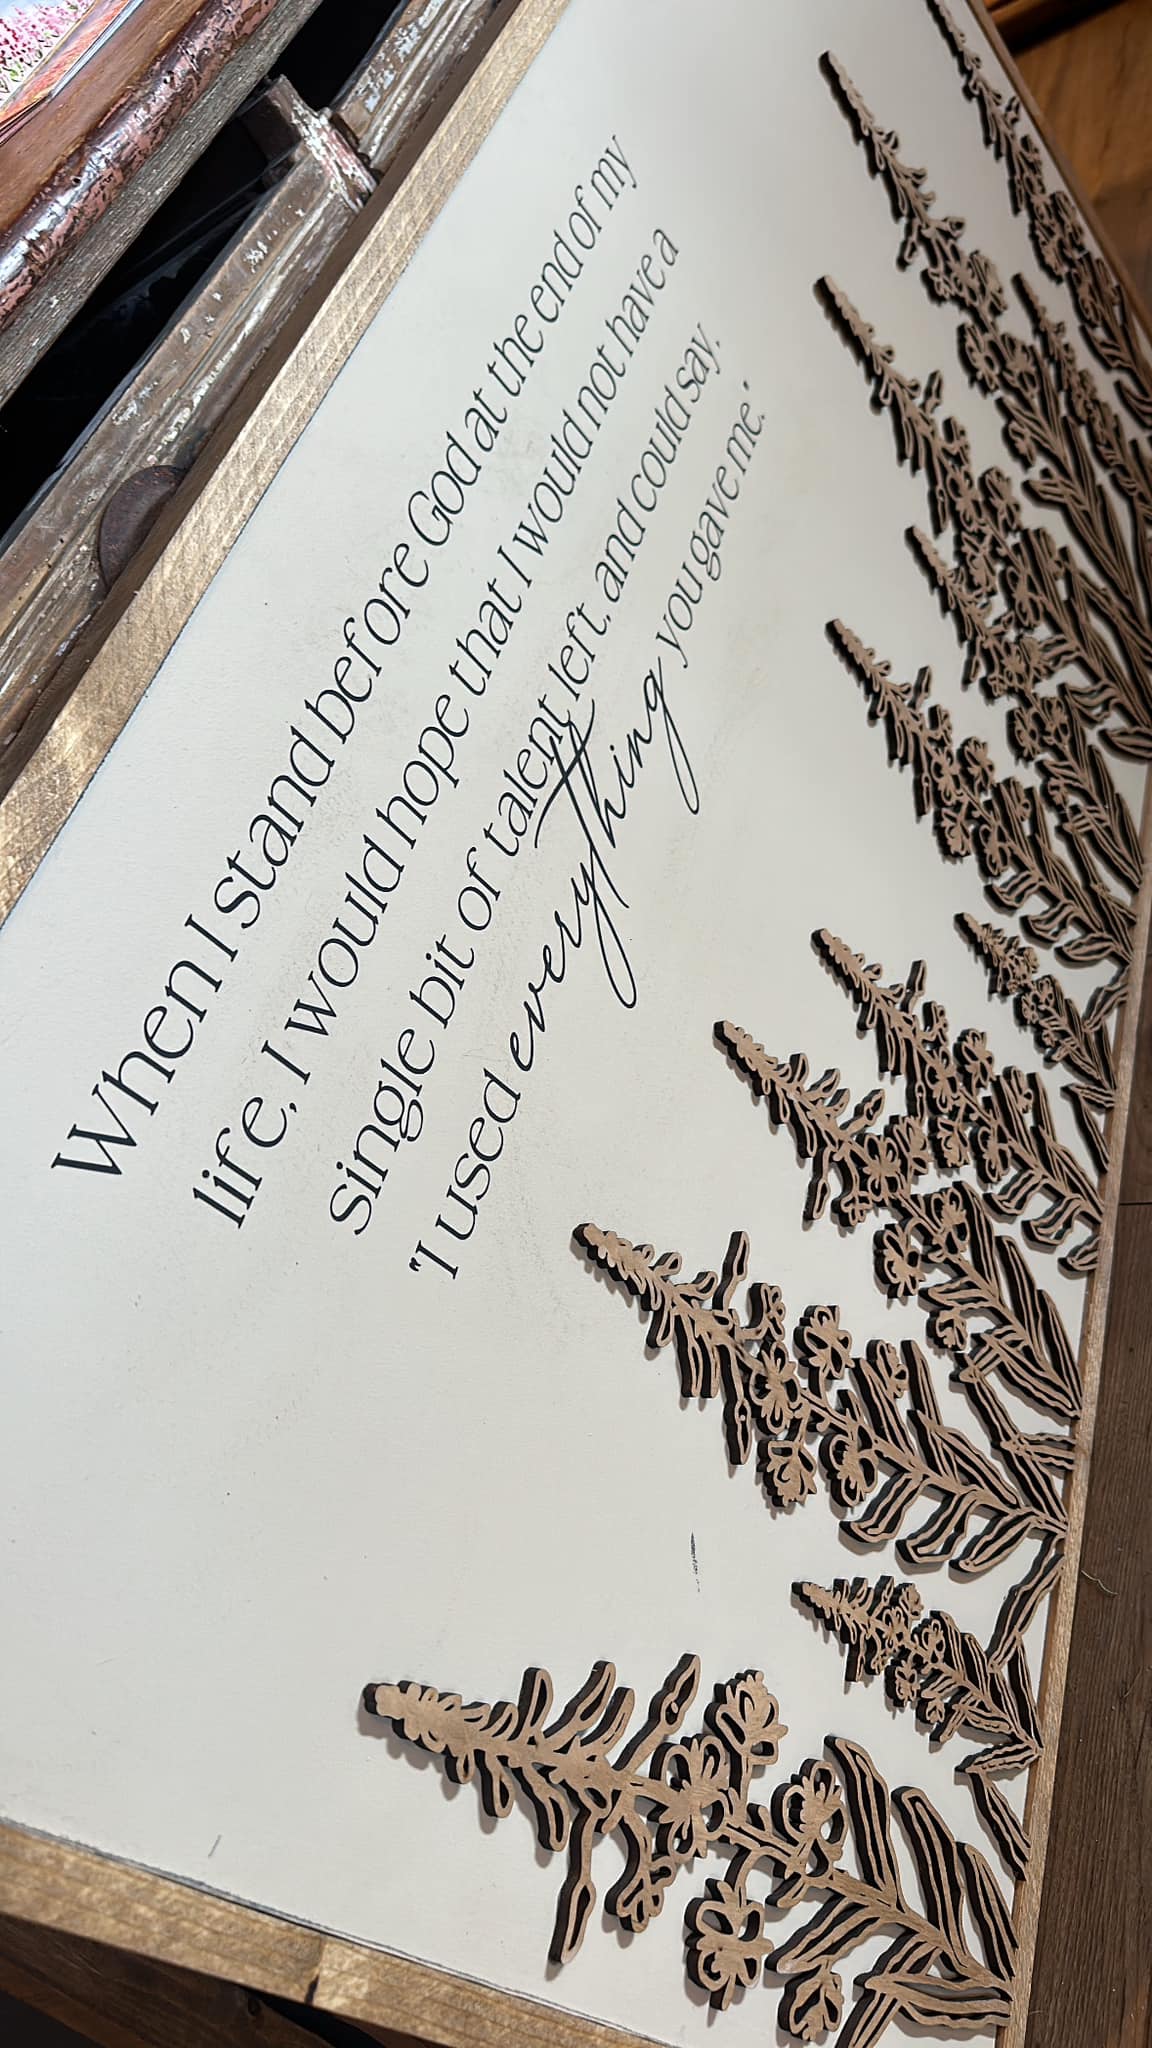 When I stand before God at the end of my
life, I would hope that I would not have a
single bit of talent left, and could say,
"I used everything you gave me."